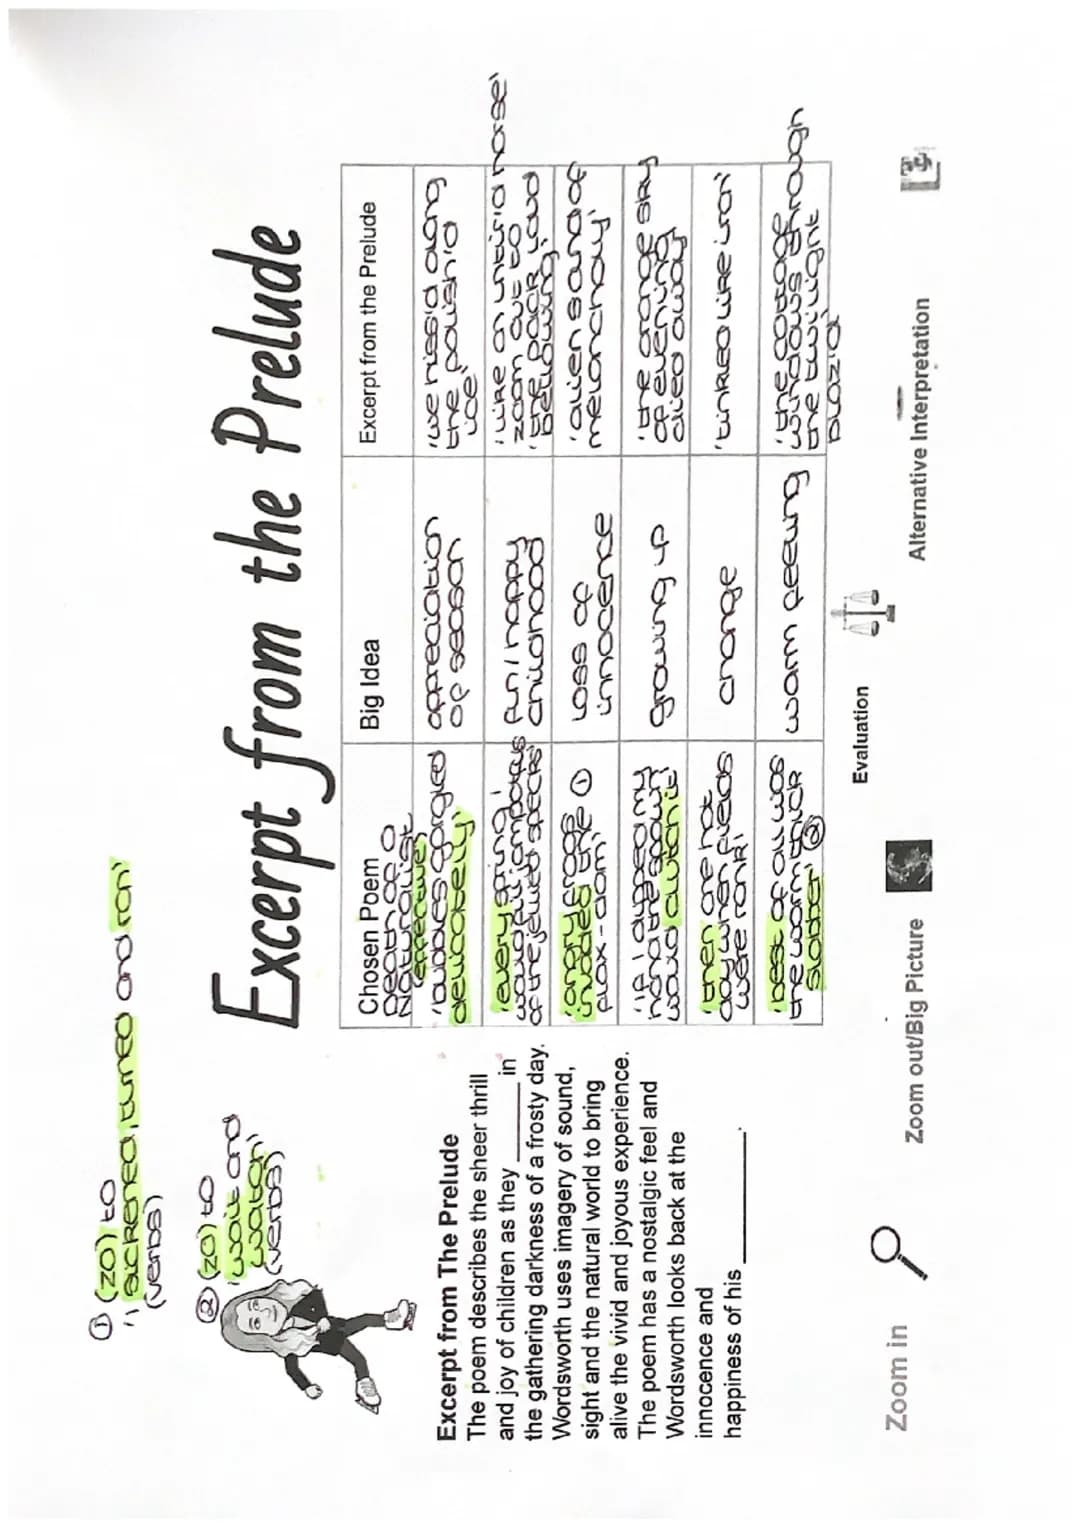 ① (ZO) to
'sickened, turned and ran'
(verbs)
② (ZO) to
'wait and
watch'
(verbs)
Excerpt from the Prelude
Excerpt from The Prelude
The poem describes the sheer thrill
and joy of children as they ______ in
the gathering darkness of a frosty day.
Wordsworth uses imagery of sound,
sight and the natural world to bring
alive the vivid and joyous experience.
The poem has a nostalgic feel and
Wordsworth looks back at the
innocence and
happiness of his ____________.
Chosen Poem
Death of a
Naturalist
Big Idea
Excerpt from the Prelude
(effective)
'bubbles gargled
delicately'
appreciation
of season
'we hiss'd along
the polish'd
ice'
'every spring'
would fill jampotfuls
of the jewelled specks'
fun / happy
childhood
'like an untir'd horse'
zoom out to
'the pack loud
bellowing'
'angry frogs
invaded the ①
flax-dam'
loss of
innocence
'alien sound of
melancholy'
'if i dipped my
hand the spawn
would clutch it'
growing up
'the orange sky
of evening
died away'
'then one hot
day when fields
were rank'
change
'tinkled like iron'
'best of all was
the warm thick
slobber' ②
warm feeling
'the cottage
windows through
the twilight
blaz'd'
Evaluation
Zoom in
Zoom out/Big Picture
Alternative Interpretation